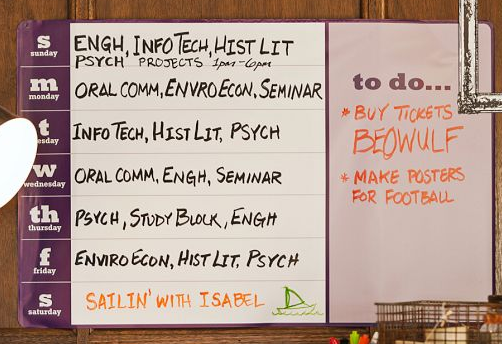 s
sunday
ENGH, INFO TECH, HIST LIT
PSYCH PROJECTS 1pm-6pm
m
monday
ORAL COMM, ENVRO ECON, SEMINAR
t
esday
INFO TECH, HIST LIT, PSYCH
w
wednesday
ORAL COMM, ENGH, SEMINAR
th
thursday
PSYCH, STUDY BLOCK, ENGH
f
friday
ENVIRO ECON, HIST LIT, PSYCH
s
saturday
SAILIN' WITH ISABEL
to do...
* BUY TICKETS
BEOWULF
* MAKE POSTERS
FOR FOOTBALL